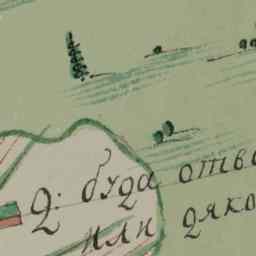 Q: буде отво
или дяко